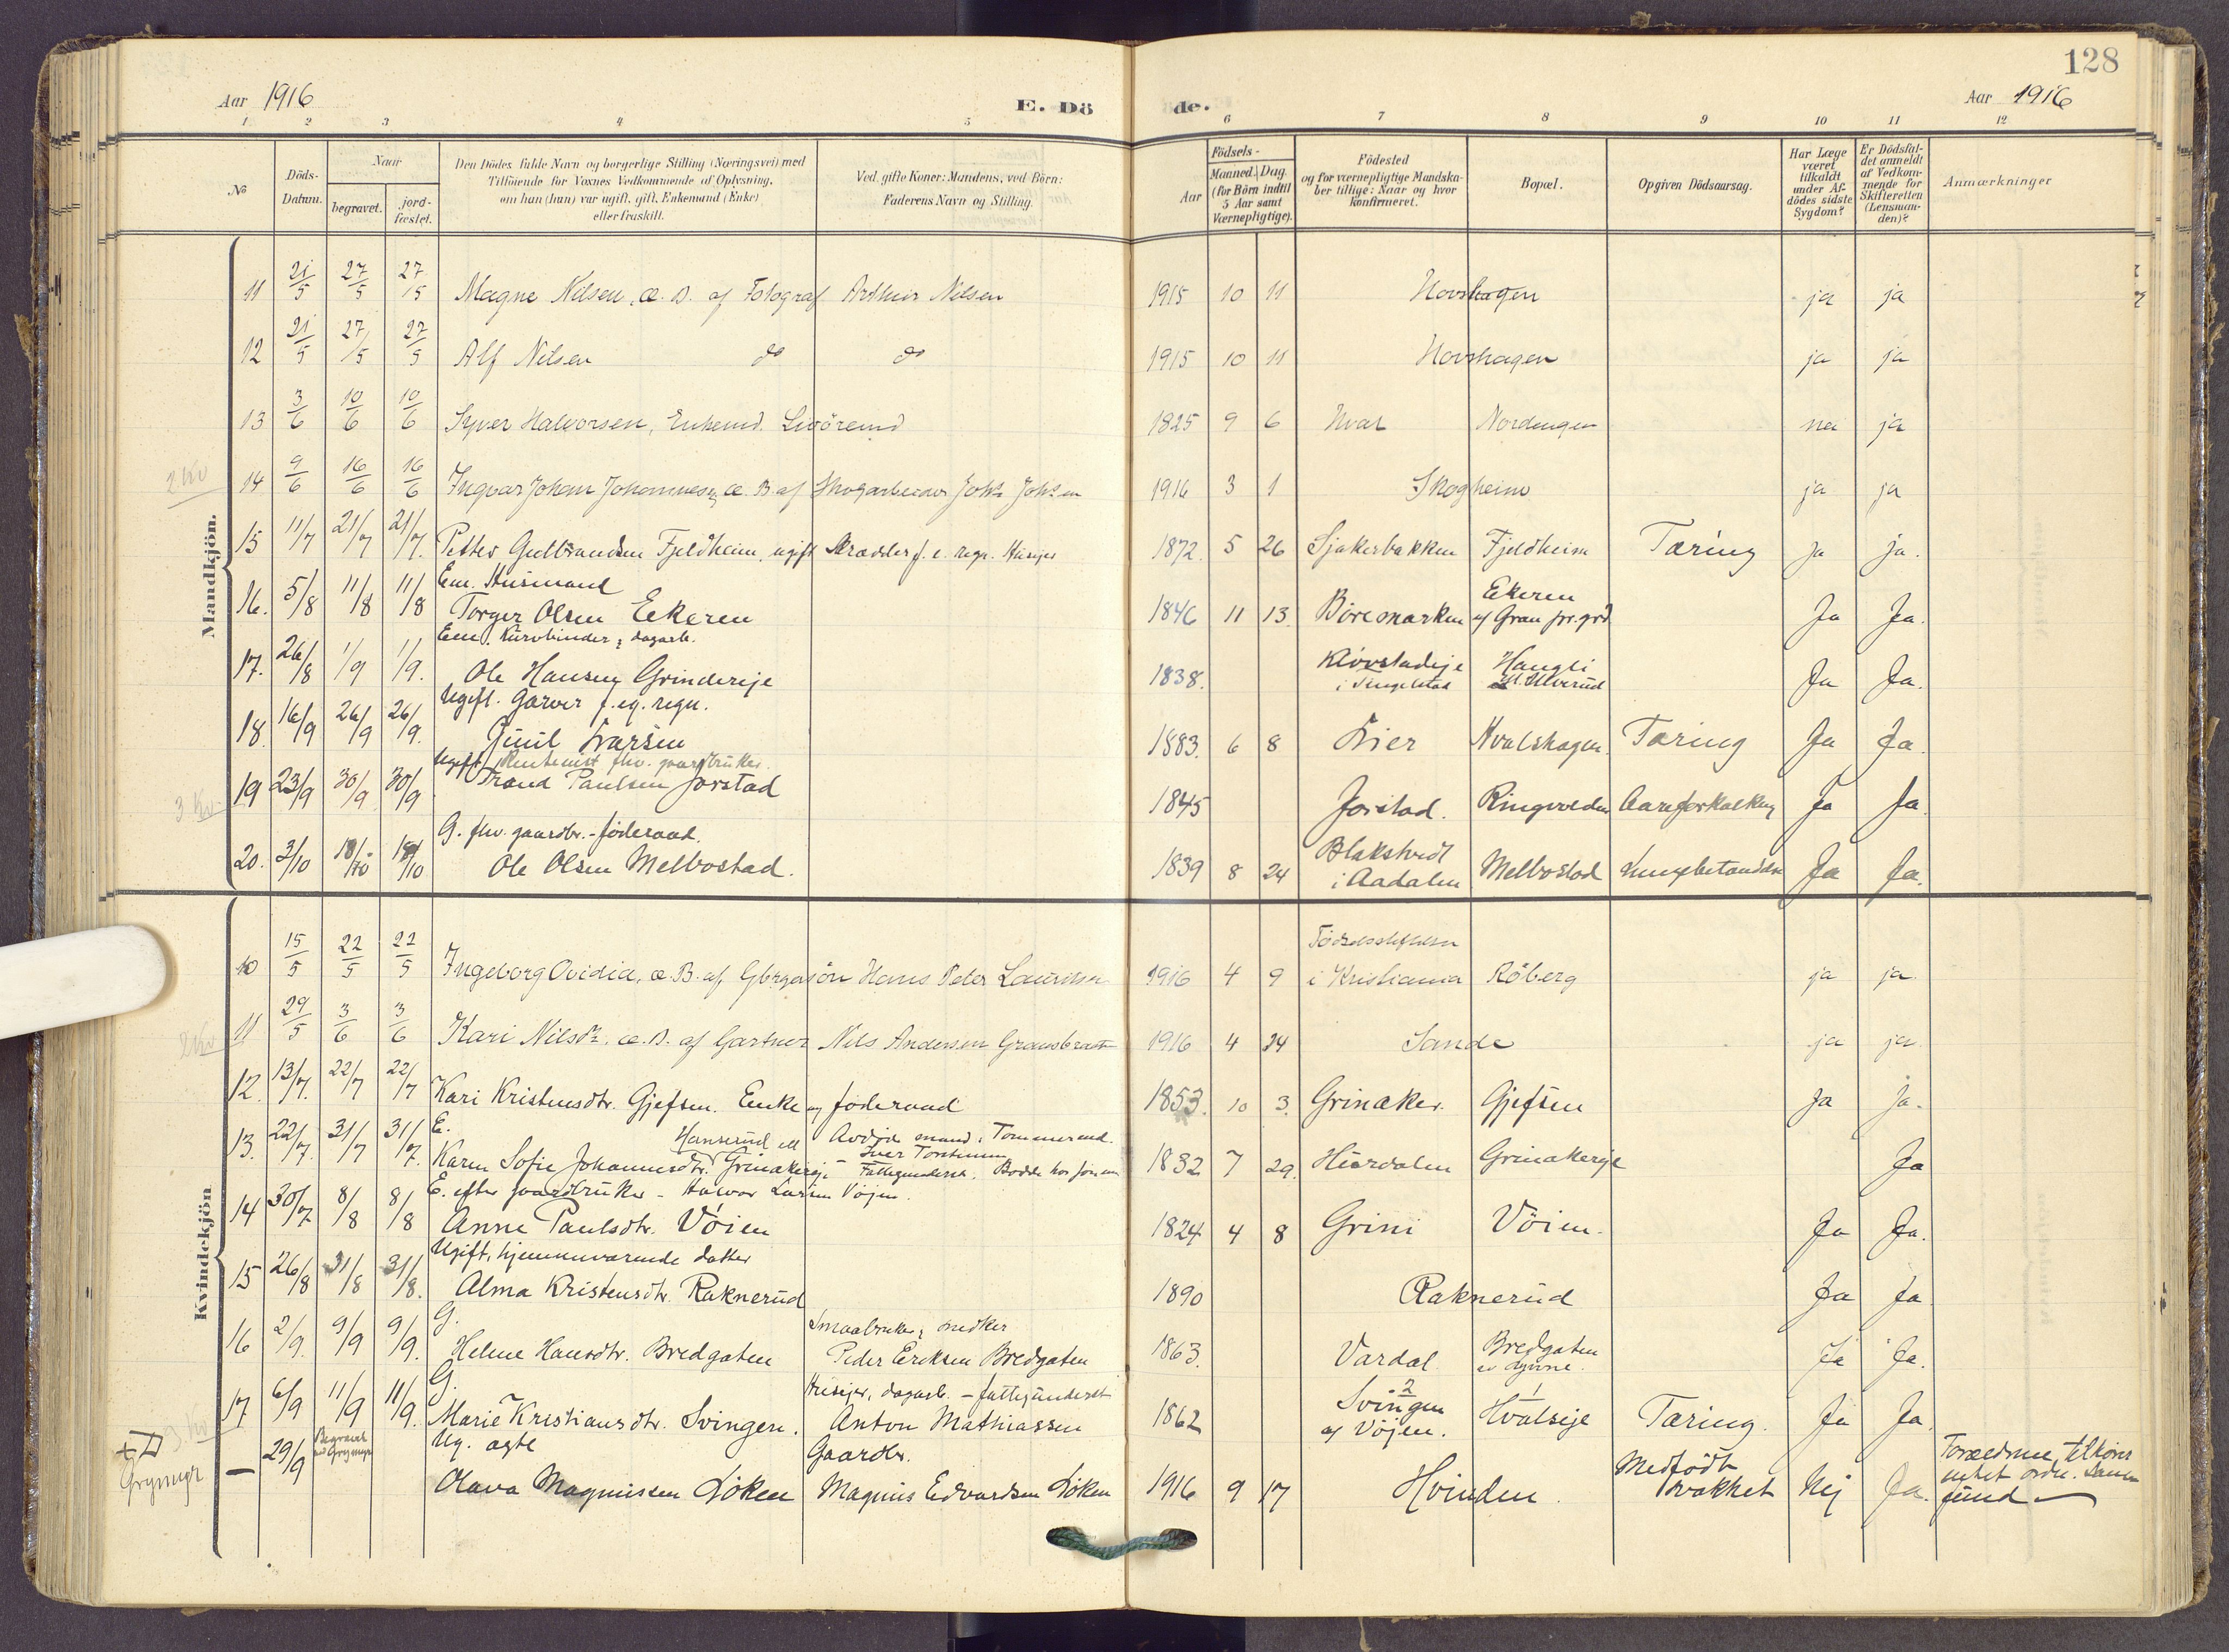 128
Aar 1916
E. Dö de.
Aar 1916
1 2 3 4 5 6 7 8 9 10 11 12
No
Döds-Datum.
Naar
begravet.
jord-fæstet.
Den Dödes fulde Navn og borgerlige Stilling (Næringsvei) med
Tilföiende for Voxnes Vedkommende af Oplysning,
om han (hun) var ugift, gift, Enkemand (Enke)
eller fraskilt.
Ved gifte Koner: Mandens, ved Börn:
Faderens Navn og Stilling.
Födsels-
Aar
Maaned. Dag
(for Börn indtil
5 Aar samt
Værnepligtige).
Födested
og for værnepligtige Mandska-
ber tillige: Naar og hvor
konfirmeret.
Bopæl.
Opgiven Dödsaarsag.
Har Læge
været
tilkaldt
under Af-
dödes sidste
Sygdom?
Er Dödsfal-
det anmeldt
af Vedkom-
mende for
Skifteretten
(Lensman-
den)?
Anmærkninger
Mandkjön.
11 21/5 27/5 27/5 Magne Nilsen, æ. B. af Fotograf Arthur Nilsen 1915 10 11 Hovshagen ja ja
12 21/5 27/5 27/5 Alf Nilsen do do 1915 10 11 Hovshagen ja ja
13 3/6 10/6 10/6 Syver Halvorsen, Enkemd. 1825 9 6 Hval Nordengen nei ja
2 Kv
14 9/6 16/6 16/6 Ingvar Johan Johannesen, æ. B. af Skogarbeider 1916 3 1 Skogheim ja ja
15 11/7 21/7 21/7. Petter Gulbrandsen Fjeldheim, ugift Skrædder f. e. regn. Huseier 1872 5 26 Sjakerbakken Fjeldheim Tæring ja ja.
Em. Husmand
16. 5/8 11/8 11/8 Torger Olsen Eekeren 1846 11 13. Boremarken Ekeren af Gran pr.grd Ja Ja.
Em. Kurvbinder, dagarb.
17. 26/8 1/9 1/9. Ole Hansen Grindereje 1838. i Tingelstad Ja Ja.
Ugift. Garver f. eg. regn.
18. 16/9 26/9 26/9. Juul Larsen 1883. 6 8 Lier Hvalshagen Tæring Ja Ja.
Ugift Rentenist fhv. gaardbruker.
3 Kv
19 23/9 30/9 30/9 Trond Paulsen Jorstad 1845 Jorstad. Ringvolden Aareforkalkng Ja Ja.
G. fhv. gaardbr. - föderaad.
20. 3/10 10/10 Ole Olsen Melbostad. 1839 8 24 i Aadalen Melbostad Lungebetændelse Ja Ja.
Kvindekjön
10 15/5 22/5 22/5 Ingeborg Ovidia, æ. B. af Hans Peter Lauritsen 1916 4 9 Födselsstiftelsen i Kristiania Röberg ja ja
2 Kv
11 29/5 3/6 3/6 Kari Nilsdr. æ. B. af Gartner Nils Andersen 1916 4 24 Sande ja ja
12. 13/7. 22/7 22/7 Kari Kristensdtr. Gjefsen. Enke og föderaad 1853. 10 3. Grinaker Gjefsen ja ja.
E.
Avdöde mand: Tömmermd.
13. 22/7. 31/7 31/7. Karen Sofie Johannesdtr. Grinakereje Hanserud Iver Torstensen Fattigunderst. Bodde hos sönnen 1832 7 29. Hurdalen Grinakereje Ja
E. efter gaardbruker - Halvor Larsen Vöjen.
14 30/7 8/8 8/8 Anne Paulsdtr. Vöien 1824 4 8 Grini Vöien. Ja Ja.
Ugift, hjemmeværende datter
15 26/8 31/8 31/8. Alma Kristensdtr. Raknerud 1890 Raknerud Ja Ja
G. Smaabruker, snedker
16 2/9. 9/9 9/9. Helene Hansdtr. Bredgaten Peder Eriksen Bredgaten 1863. Vardal Bredgaten Ja Ja.
G. Huseier, dagarb. - fattigunderst.
3. Kv
17 6/9 11/9 11/9. Marie Kristiansdtr. Svingen. Anton Mathiassen 1862 2 Svingen af Vöjen. 1 Hvalseje Tæring. Ja Ja
Ug. ægte Gaardbr.
Grymyr
— 29/9 Begravet ved Grymyr Olava Magnussen Löken Magnus Edvardsen Löken 1916 9 17 Hvinden. Medfödt svakhet Nej Ja.